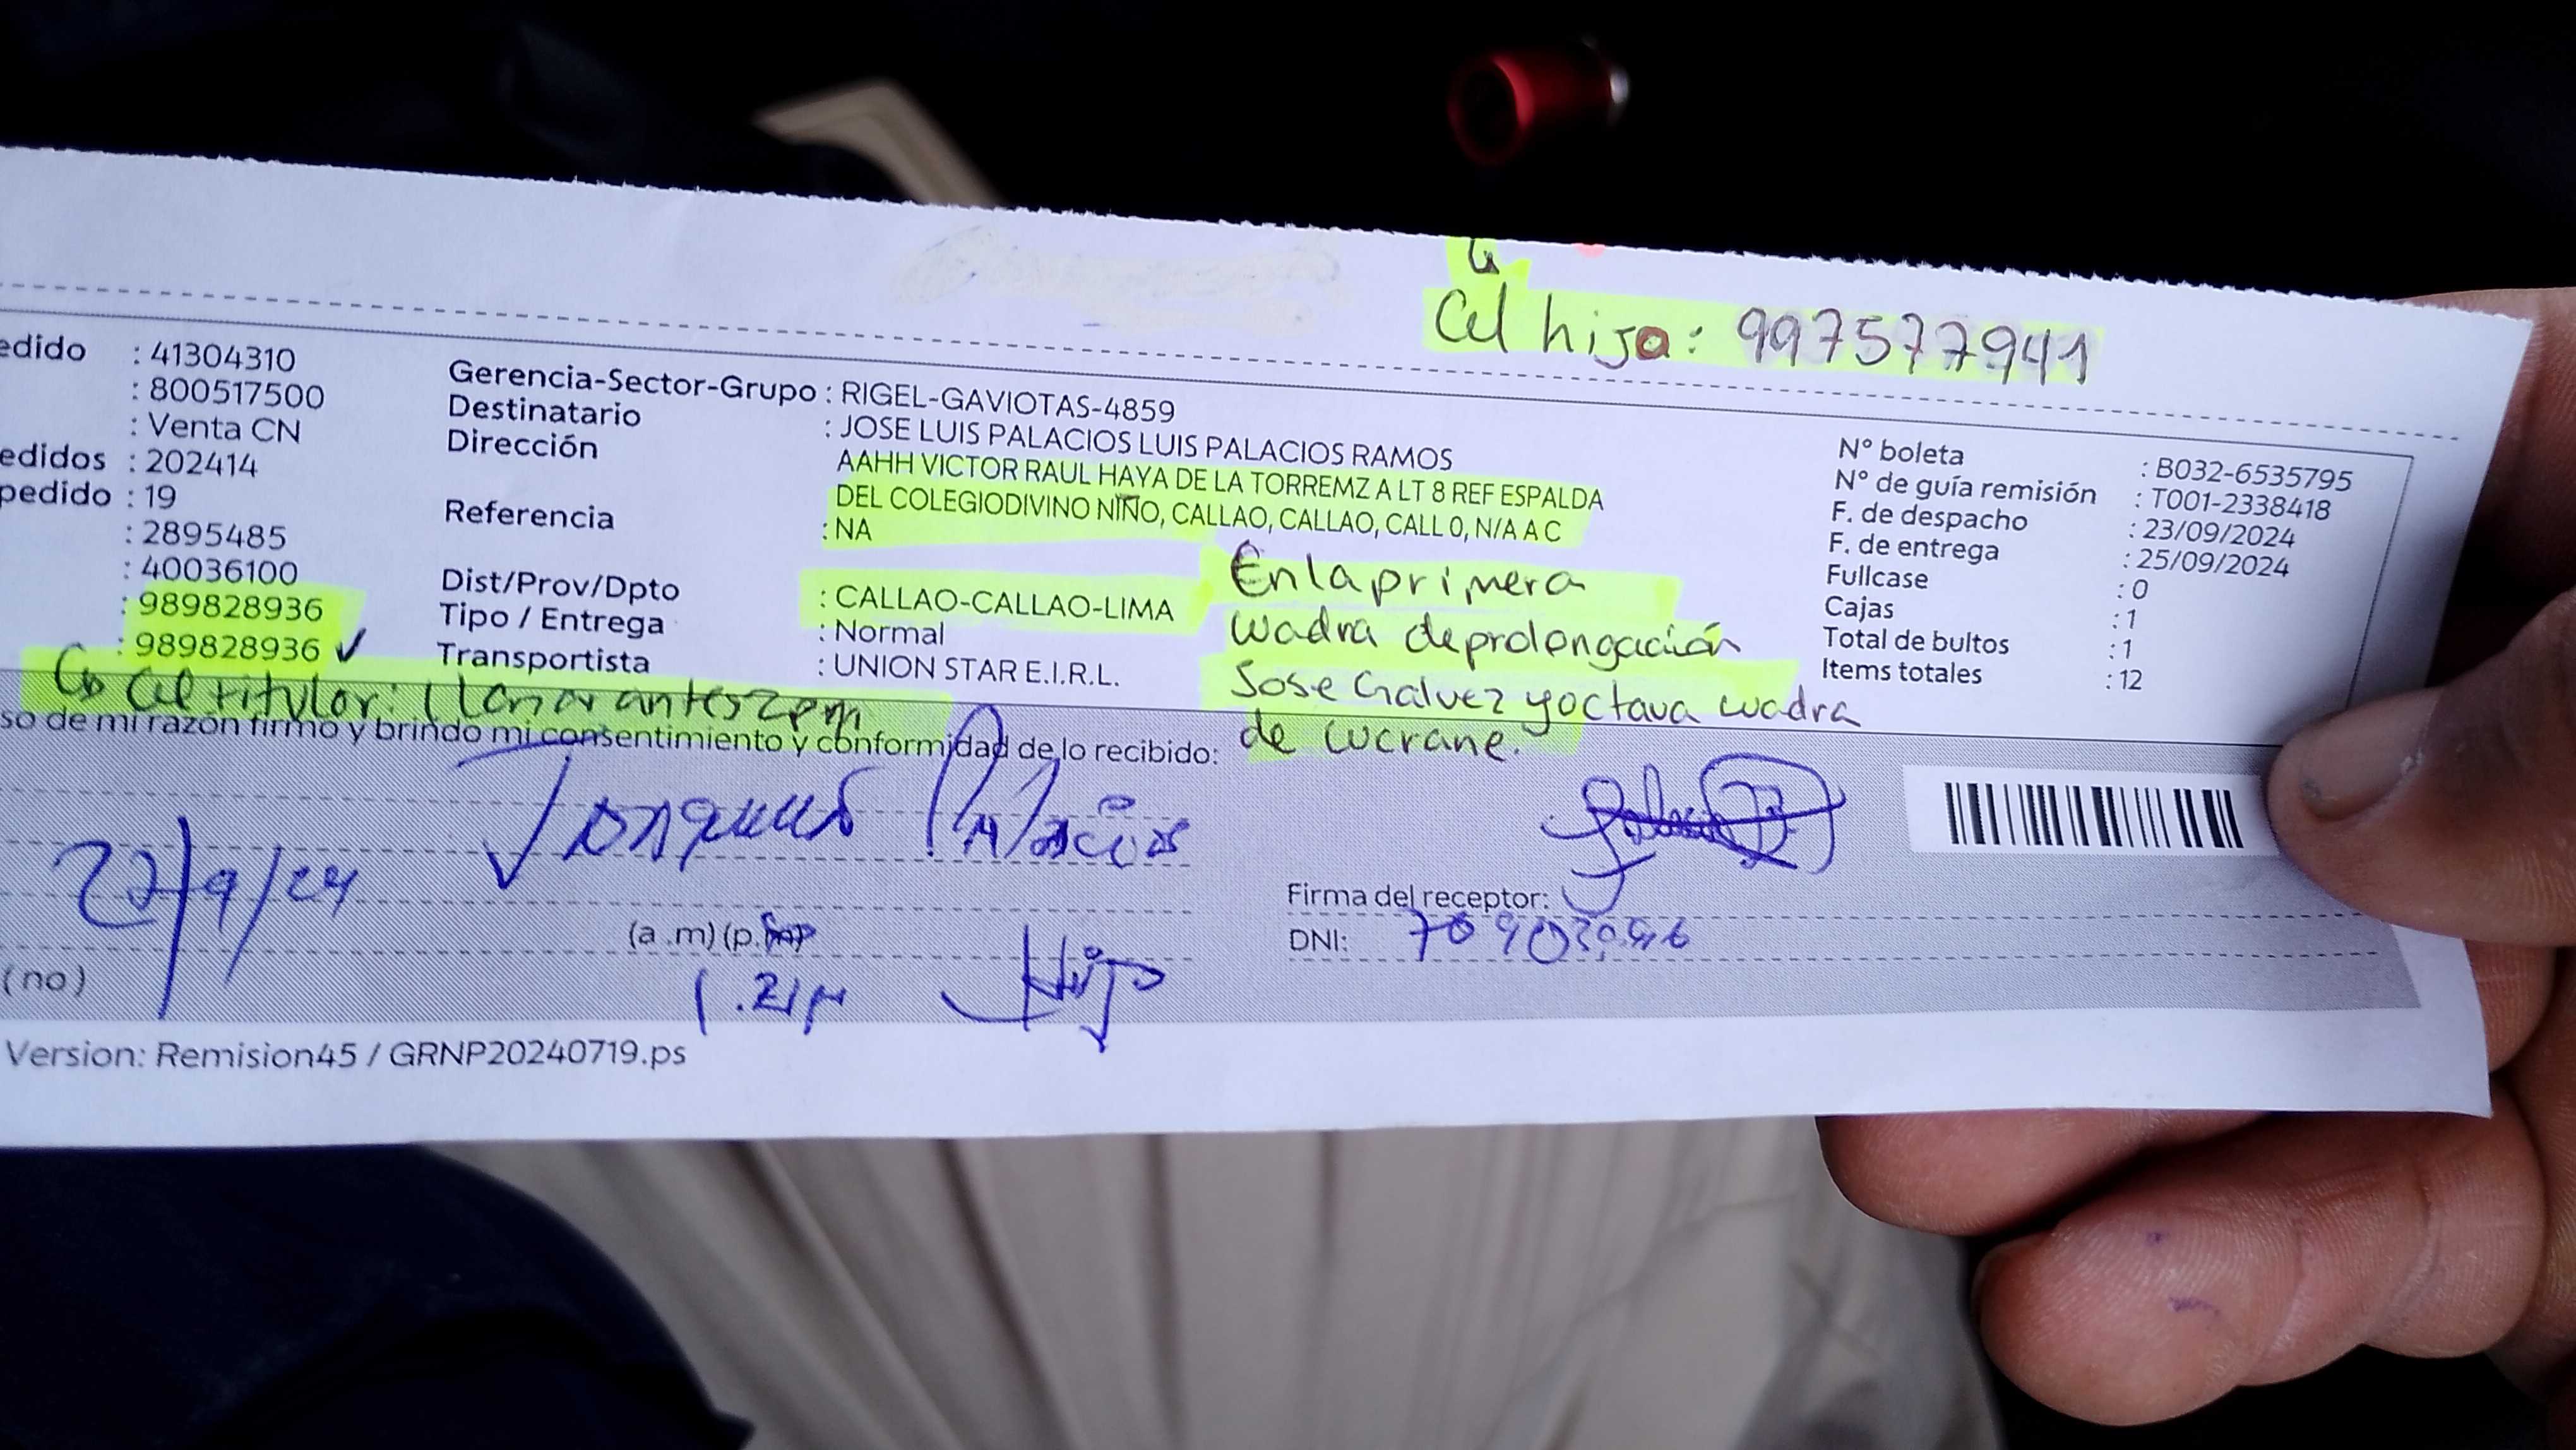 Cel hija: 997577941
edido : 41304310
: 800517500
: Venta CN
edidos : 202414
pedido : 19
: 2895485
: 40036100
: 989828936
: 989828936 ✓
Cel titular: llamar antes 2pm
Gerencia-Sector-Grupo : RIGEL-GAVIOTAS-4859
Destinatario : JOSE LUIS PALACIOS LUIS PALACIOS RAMOS
Dirección AAHH VICTOR RAUL HAYA DE LA TORREMZ A LT 8 REF ESPALDA
DEL COLEGIODIVINO NIÑO, CALLAO, CALLAO, CALL 0, N/A A C
Referencia : NA
Dist/Prov/Dpto : CALLAO-CALLAO-LIMA
Tipo / Entrega : Normal
Transportista : UNION STAR E.I.R.L.
En la primera
cuadra de prolongación
Jose Galvez y octava cuadra
de
N° boleta : B032-6535795
N° de guía remisión : T001-2338418
F. de despacho : 23/09/2024
F. de entrega : 25/09/2024
Fullcase : 0
Cajas : 1
Total de bultos : 1
Items totales : 12
so de mi razón firmo y brindo mi consentimiento y conformidad de lo recibido:
Palacios
/9/24
(a .m) (p.m)
Hijo
Firma del receptor:
DNI:
(no)
Version: Remision45 / GRNP20240719.ps